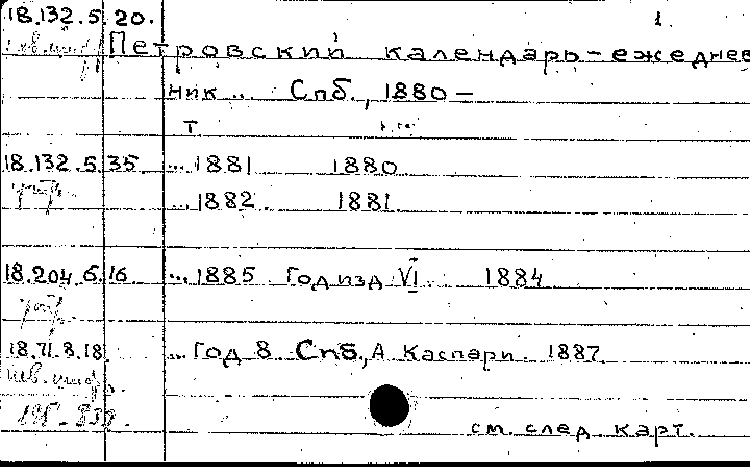 18.132.5.20. 1.
Петровский календарь-ежеднев
ник... Спб., 1880 –
Т
18.132.5.35 ...1881 1880
...1882. 1881
18.204.6.16 ...1885 Год изд. VI. 1884
18.71.8.18. ...Год 8 Спб., А. Каспари. 1887.
см. след. карт.